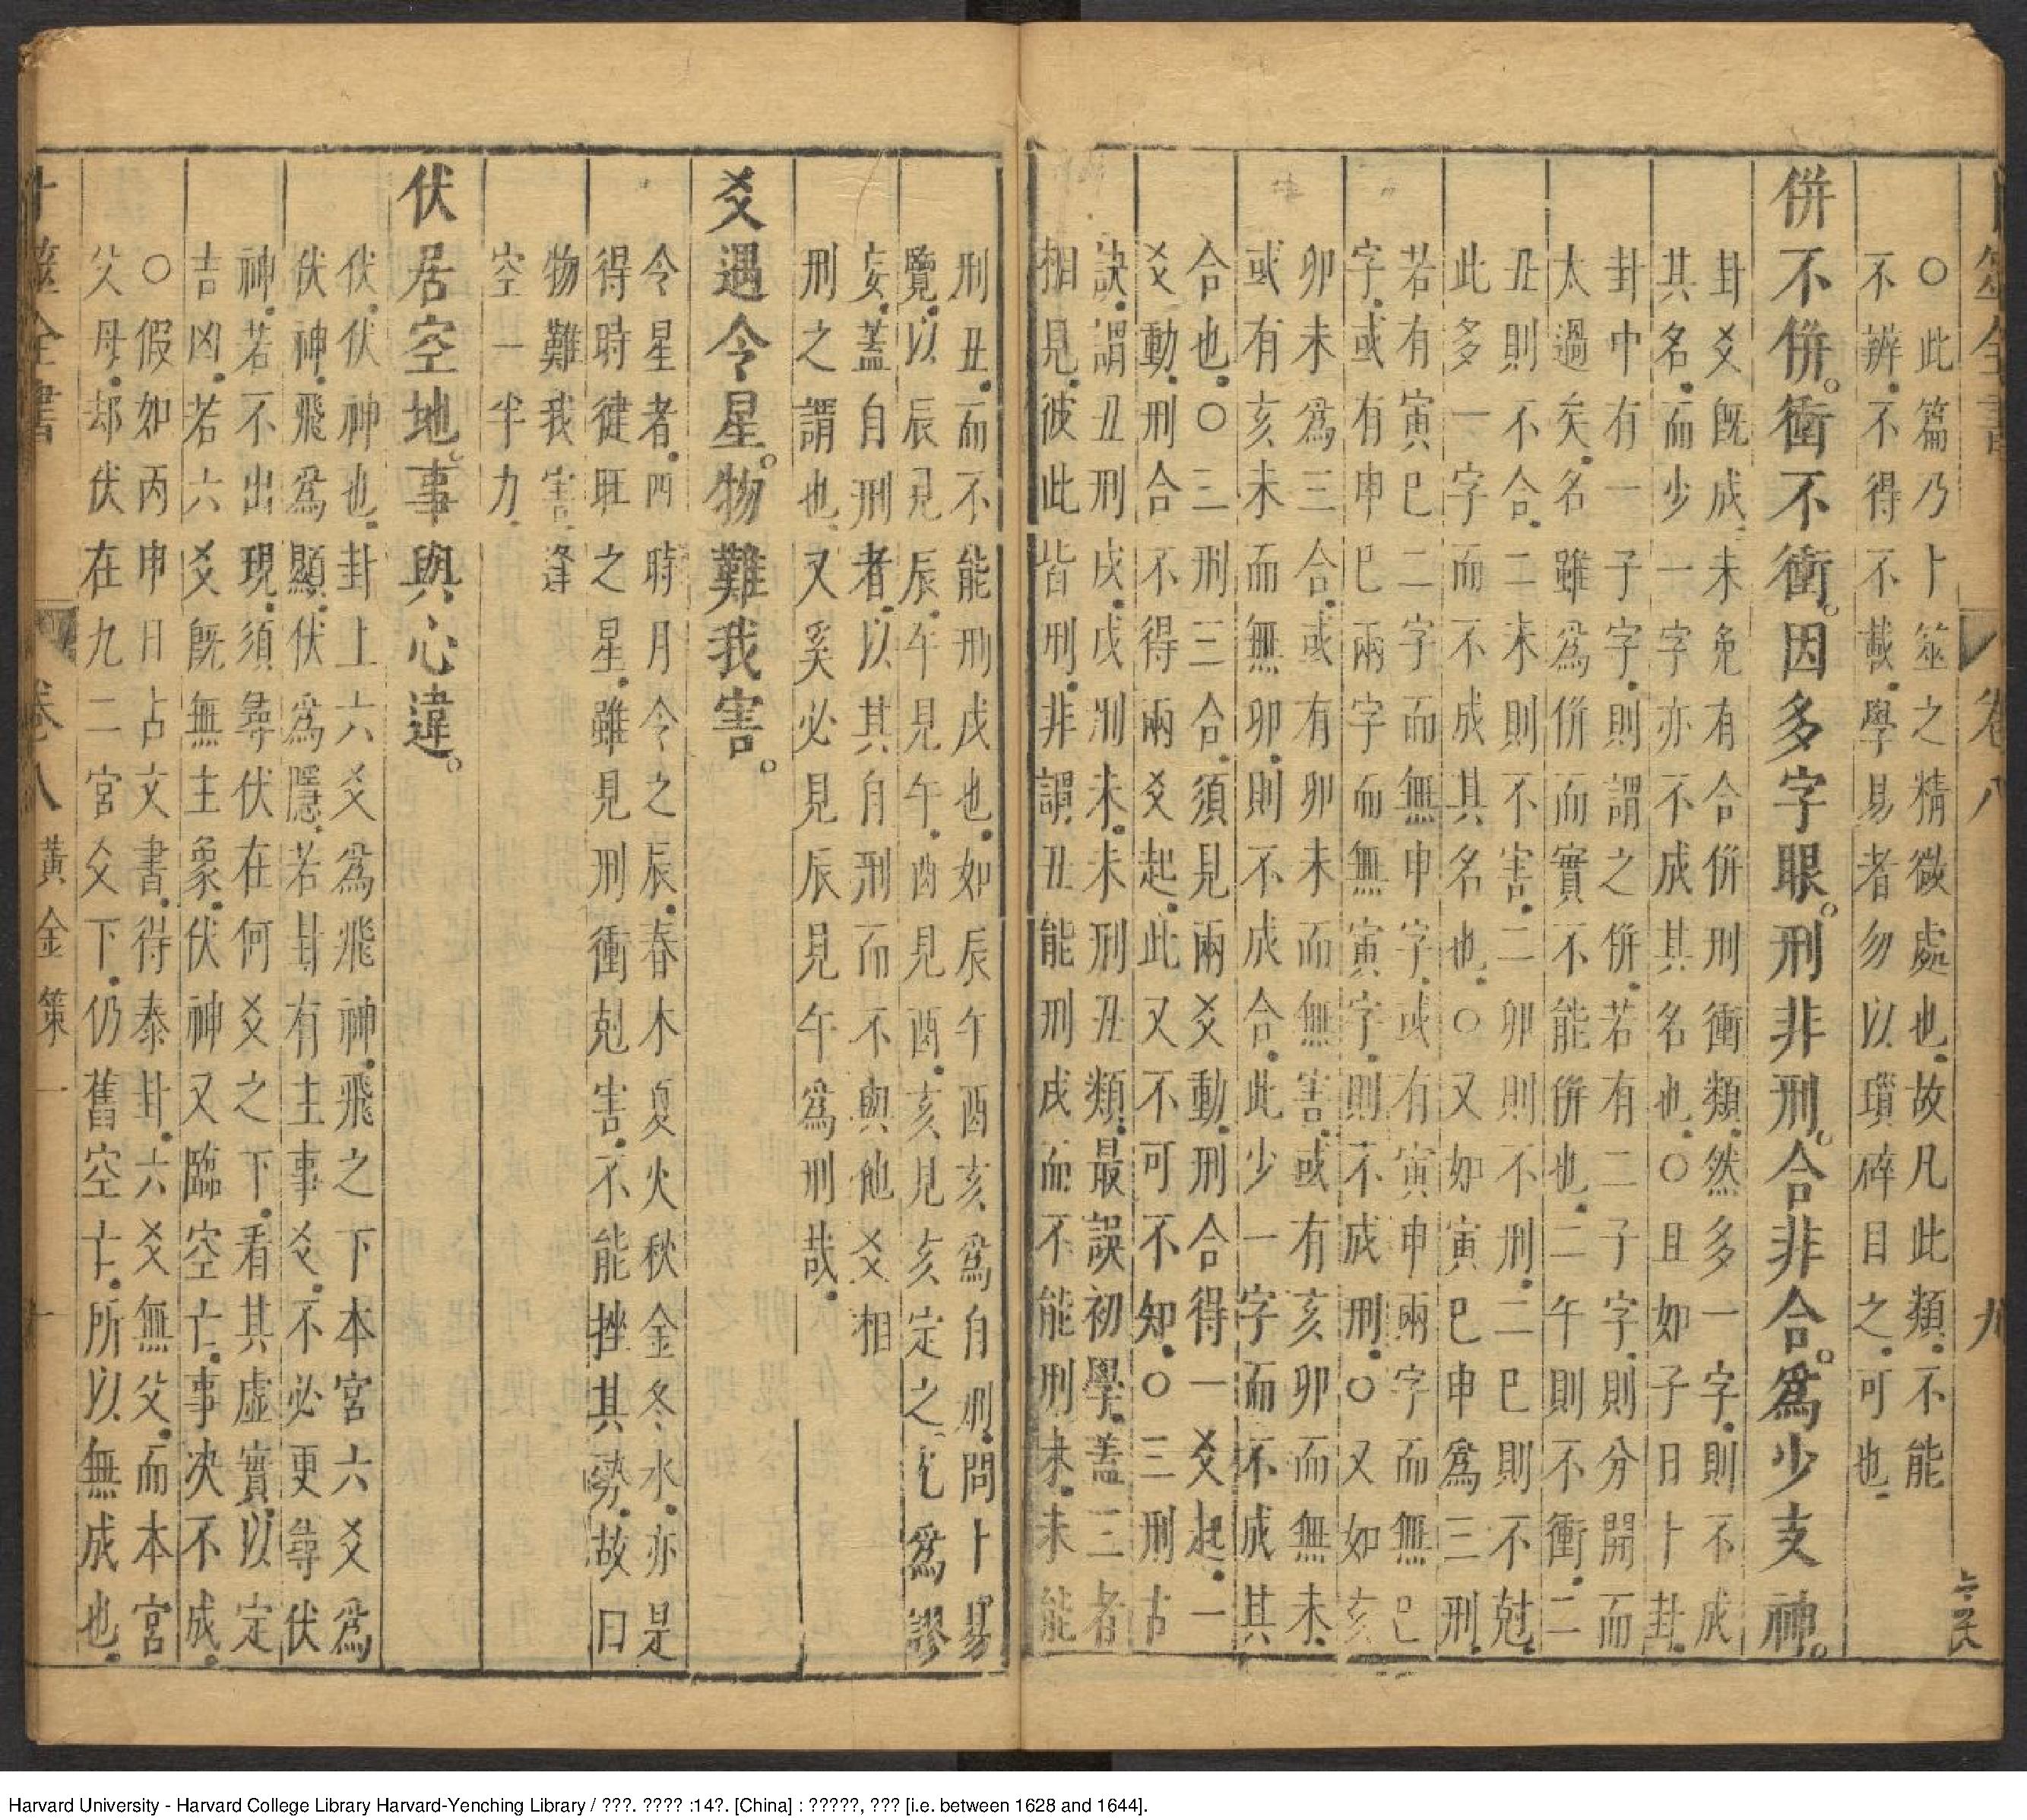 卜筮全書
卷八
九
六十三
○此篇乃卜筮之精微處也故凡此類不能
不辨不得不載學易者勿以瑣碎目之可也
併不併。衝不衝。因多字眼。刑非刑。合非合。為少支神。
卦爻既成未免有合併刑衝類然多一字則不成
其名而少一字亦不成其名也○且如子日卜卦
卦中有一子字則謂之併若有二子字則分開而
太過矣名雖為併而實不能併也二午則不衝二
丑則不合二未則不害二卯則不刑二巳則不尅
此多一字而不成其名也○又如寅巳申為三刑
若有寅巳二字而無申字或有寅申兩字而無巳
字或有申巳兩字而無寅字則不成刑○又如亥
卯未為三合或有卯未而無害或有亥卯而無未
或有亥未而無卯則不成合此少一字而不成其
合也○三刑三合須見兩爻動刑合得一爻起一
爻動刑合不得兩爻起此又不可不知○三刑古
訣謂丑刑戌戌刑未未刑丑類最誤初學蓋三者
相見彼此皆刑非謂丑能刑戌而不能刑未未能
刑丑而不能刑戌也如辰午酉亥為自刑問卜易
覽以辰見辰午見午酉見酉亥見亥定之尤為謬
妄蓋自刑者以其自刑而不與他爻相
刑之謂也又奚必見辰見午為刑哉
爻遇令星。物難我害。
令星者四時月令之辰春木夏火秋金冬水亦是
得時健旺之星雖見刑衝尅害不能挫其勢故曰
物難我害逢
空一半力
伏居空地。事與心違。
伏伏神也卦上六爻為飛神飛之下本宮六爻為
伏神飛為顯伏為隱若卦有主事爻不必更尋伏
神若不出現須尋伏在何爻之下看其虛實以定
吉凶若六爻既無主象伏神又臨空亡事決不成
○假如丙申日占文書得泰卦六爻無父而本宮
父母却伏在九二宮爻下仍舊空亡所以無成也
卜筮全書
卷八
黃金策一